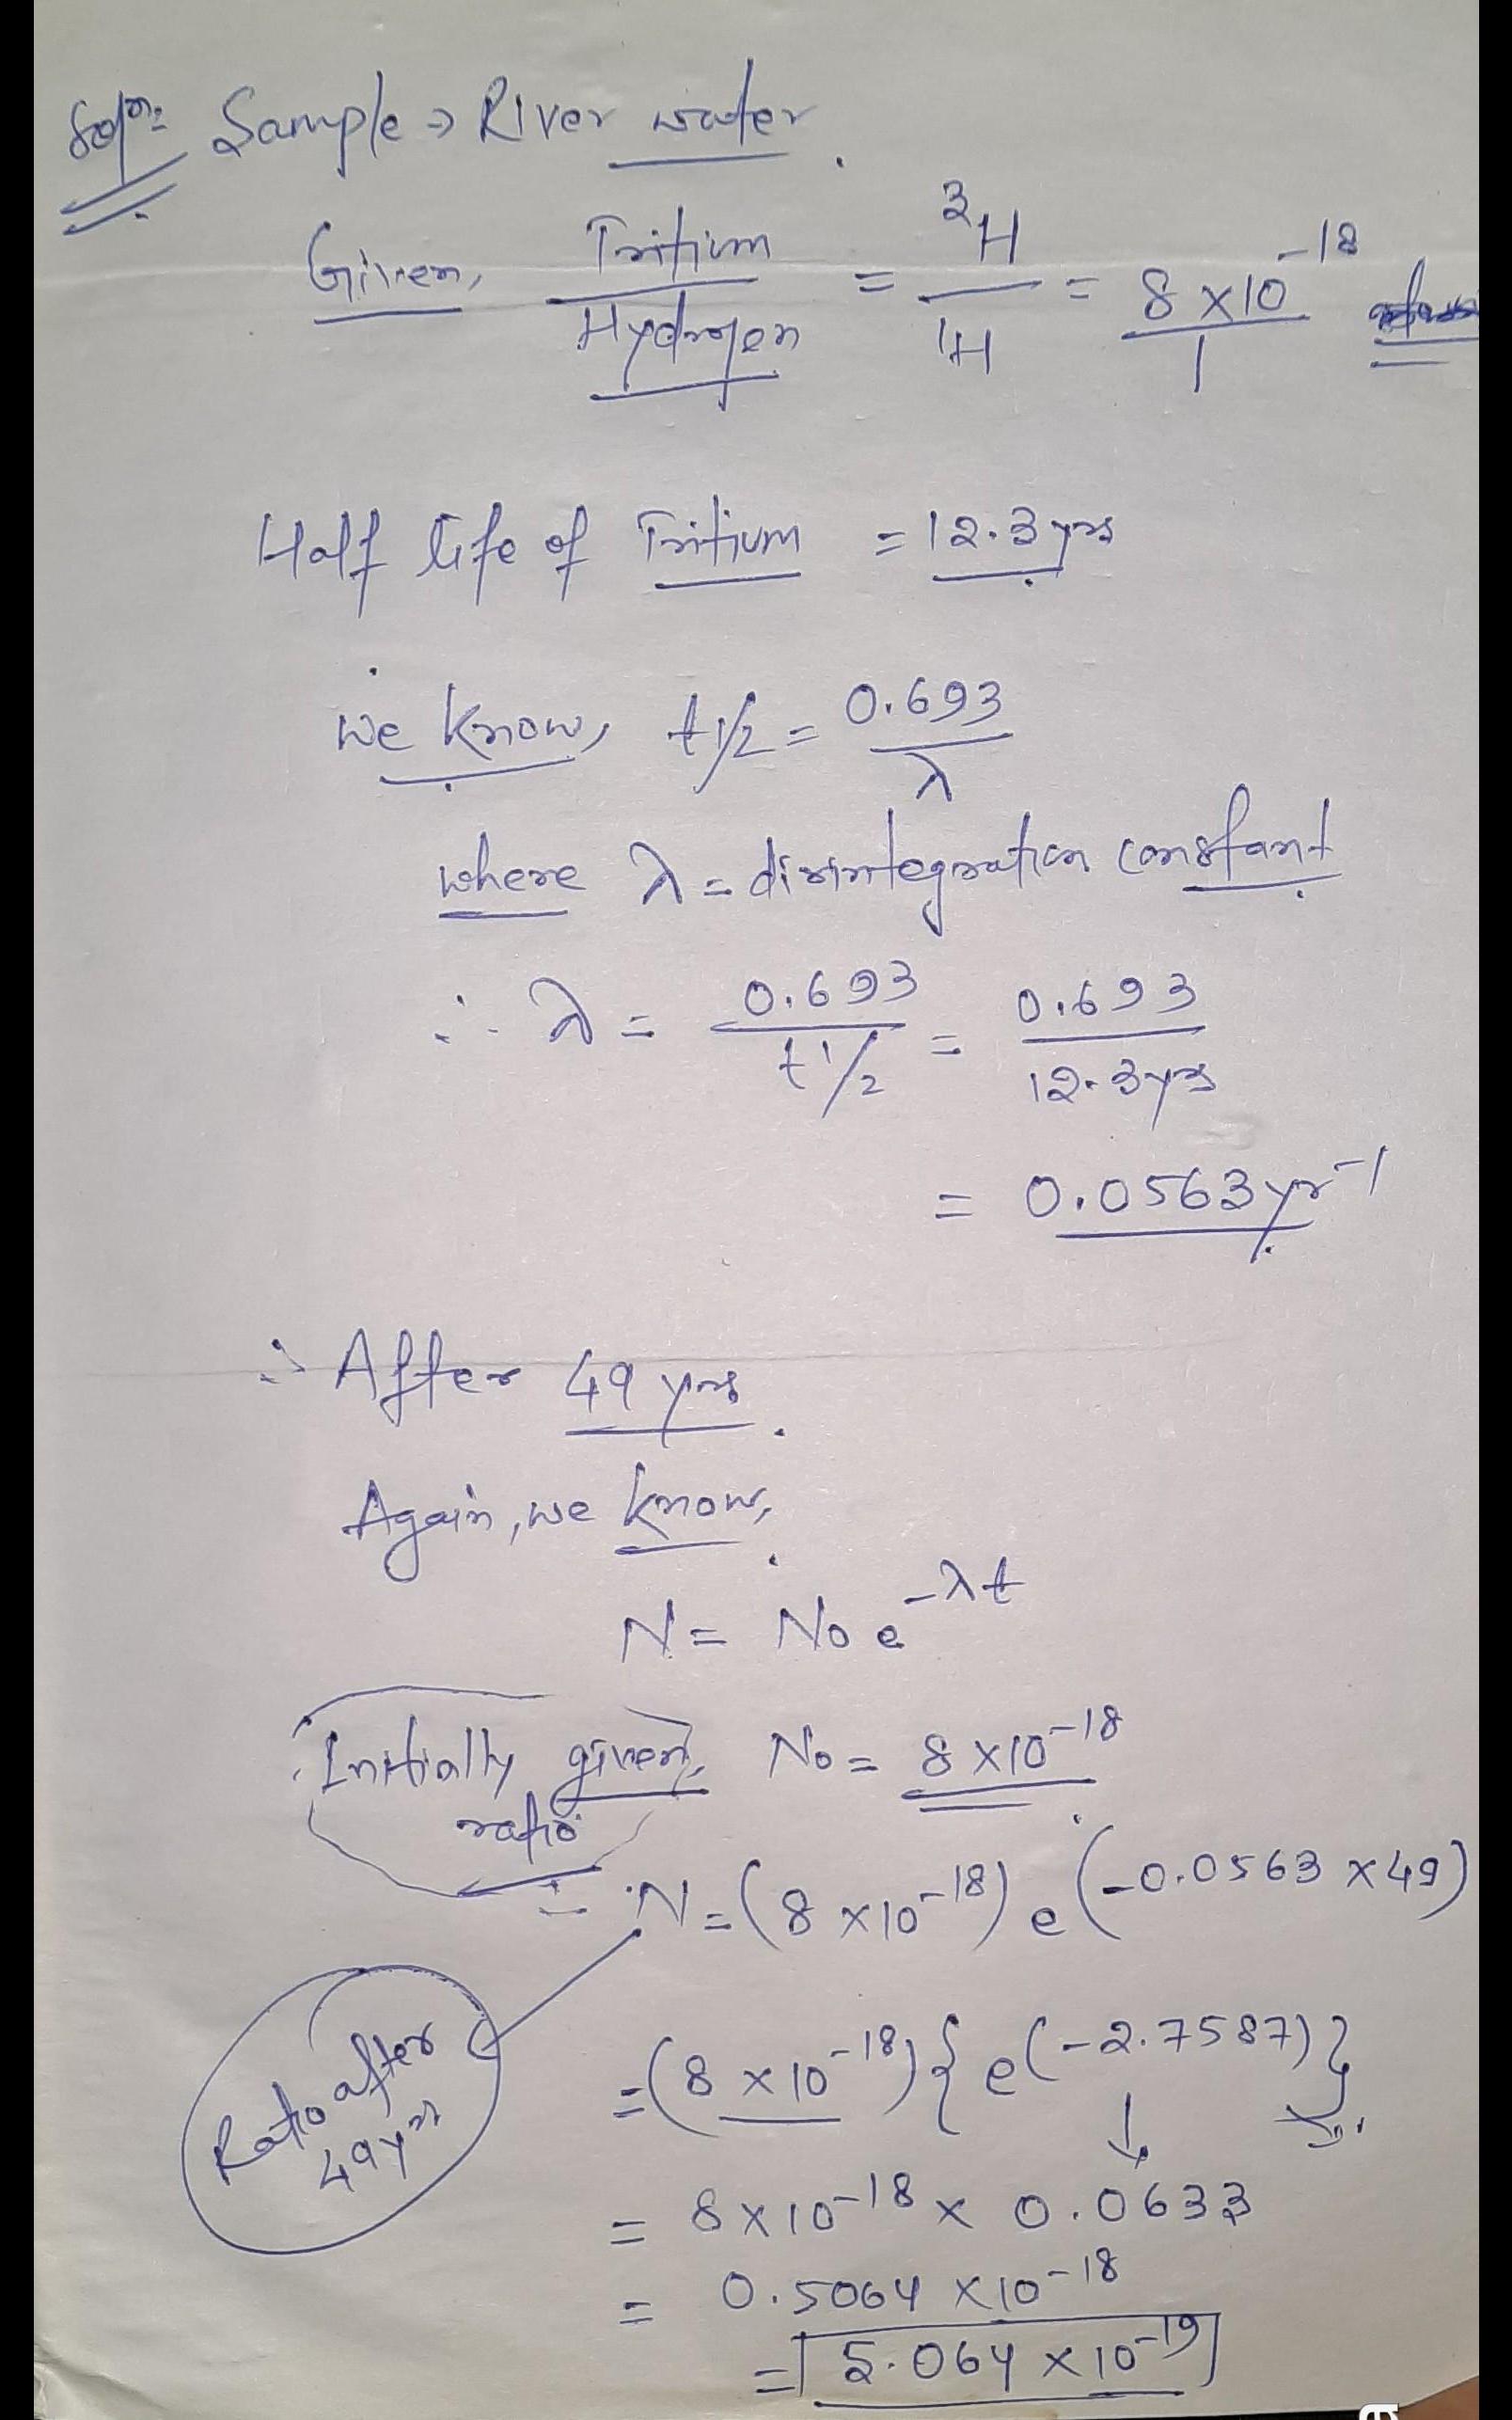 Soln: Sample → River water.
Given, Tritium / Hydrogen = ³H / ¹H = 8 × 10⁻¹⁸ / 1
Half life of Tritium = 12.3 yrs
we know, t1/2 = 0.693 / λ
where λ = disintegration constant
∴ λ = 0.693 / t1/2 = 0.693 / 12.3 yrs
= 0.0563 yr⁻¹
∴ After 49 yrs.
Again, we know,
N = No e^-λt
Initially given, No = 8 × 10⁻¹⁸
ratio
∴ N = (8 × 10⁻¹⁸) e^(-0.0563 × 49)
Ratio after
49 yrs
= (8 × 10⁻¹⁸) { e(-2.7587) }
= 8 × 10⁻¹⁸ × 0.0633
= 0.5064 × 10⁻¹⁸
= 5.064 × 10⁻¹⁹